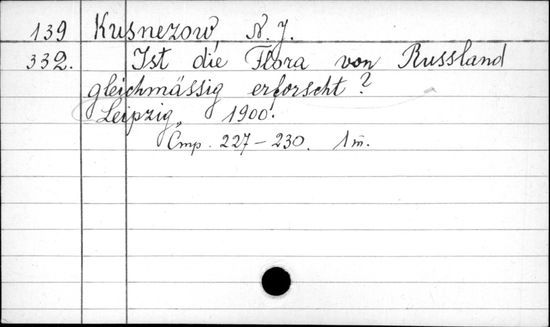 139 Kusnezow, N. J.
332. Ist die Flora von Russland
gleichmässig erforscht?
Leipzig, 1900.
Cmp. 227-230. 1 m.